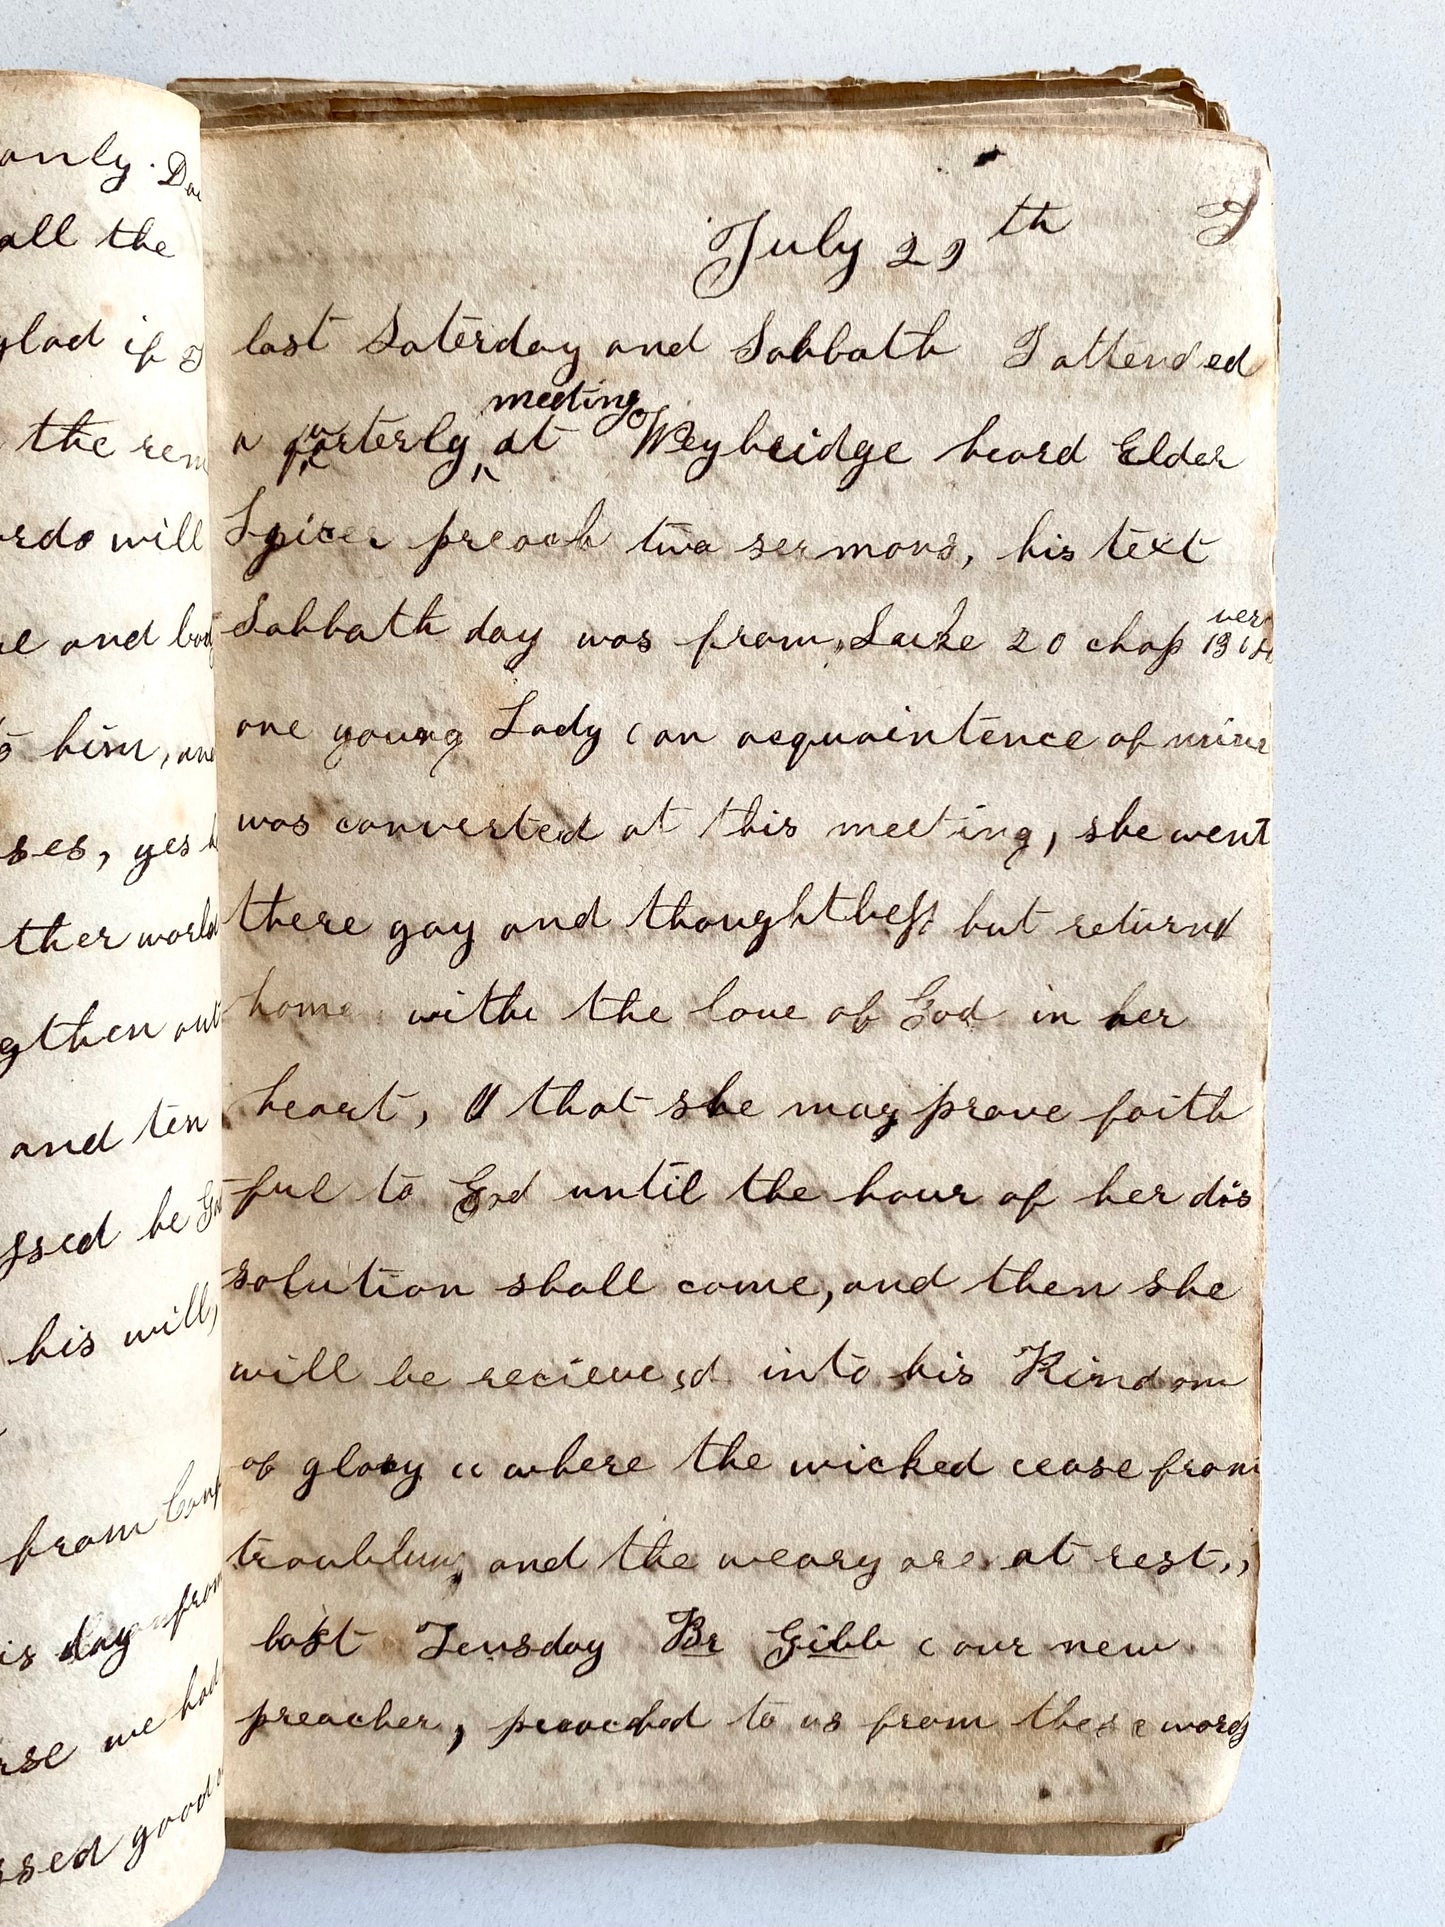 only. Da
all the
glad if I
the rem
ords will
e and bod
him, and
ses, yes h
ther world
gthen out
and ten
ssed be God
his will,
from Conf
is day from
rse we had
ssed good
July 29th
last Saterday and Sabbath I attended
a quarterly meeting at Weybridge heard Elder
Spicer preach two sermons, his text
Sabbath day was from, Luke 20 chap ver 13
one young Lady (an acquaintence of mine
was converted at this meeting, she went
there gay and thoughtless but returnd
home withe the love of God in her
heart, that she may prove faith
ful to God until the hour of her dis
solution shall come, and then she
will be recieved into his Kindom
of glory "where the wicked cease from
troubling and the weary are at rest,,
last Teusday Br Gibb (our new
preacher, preached to us from these words